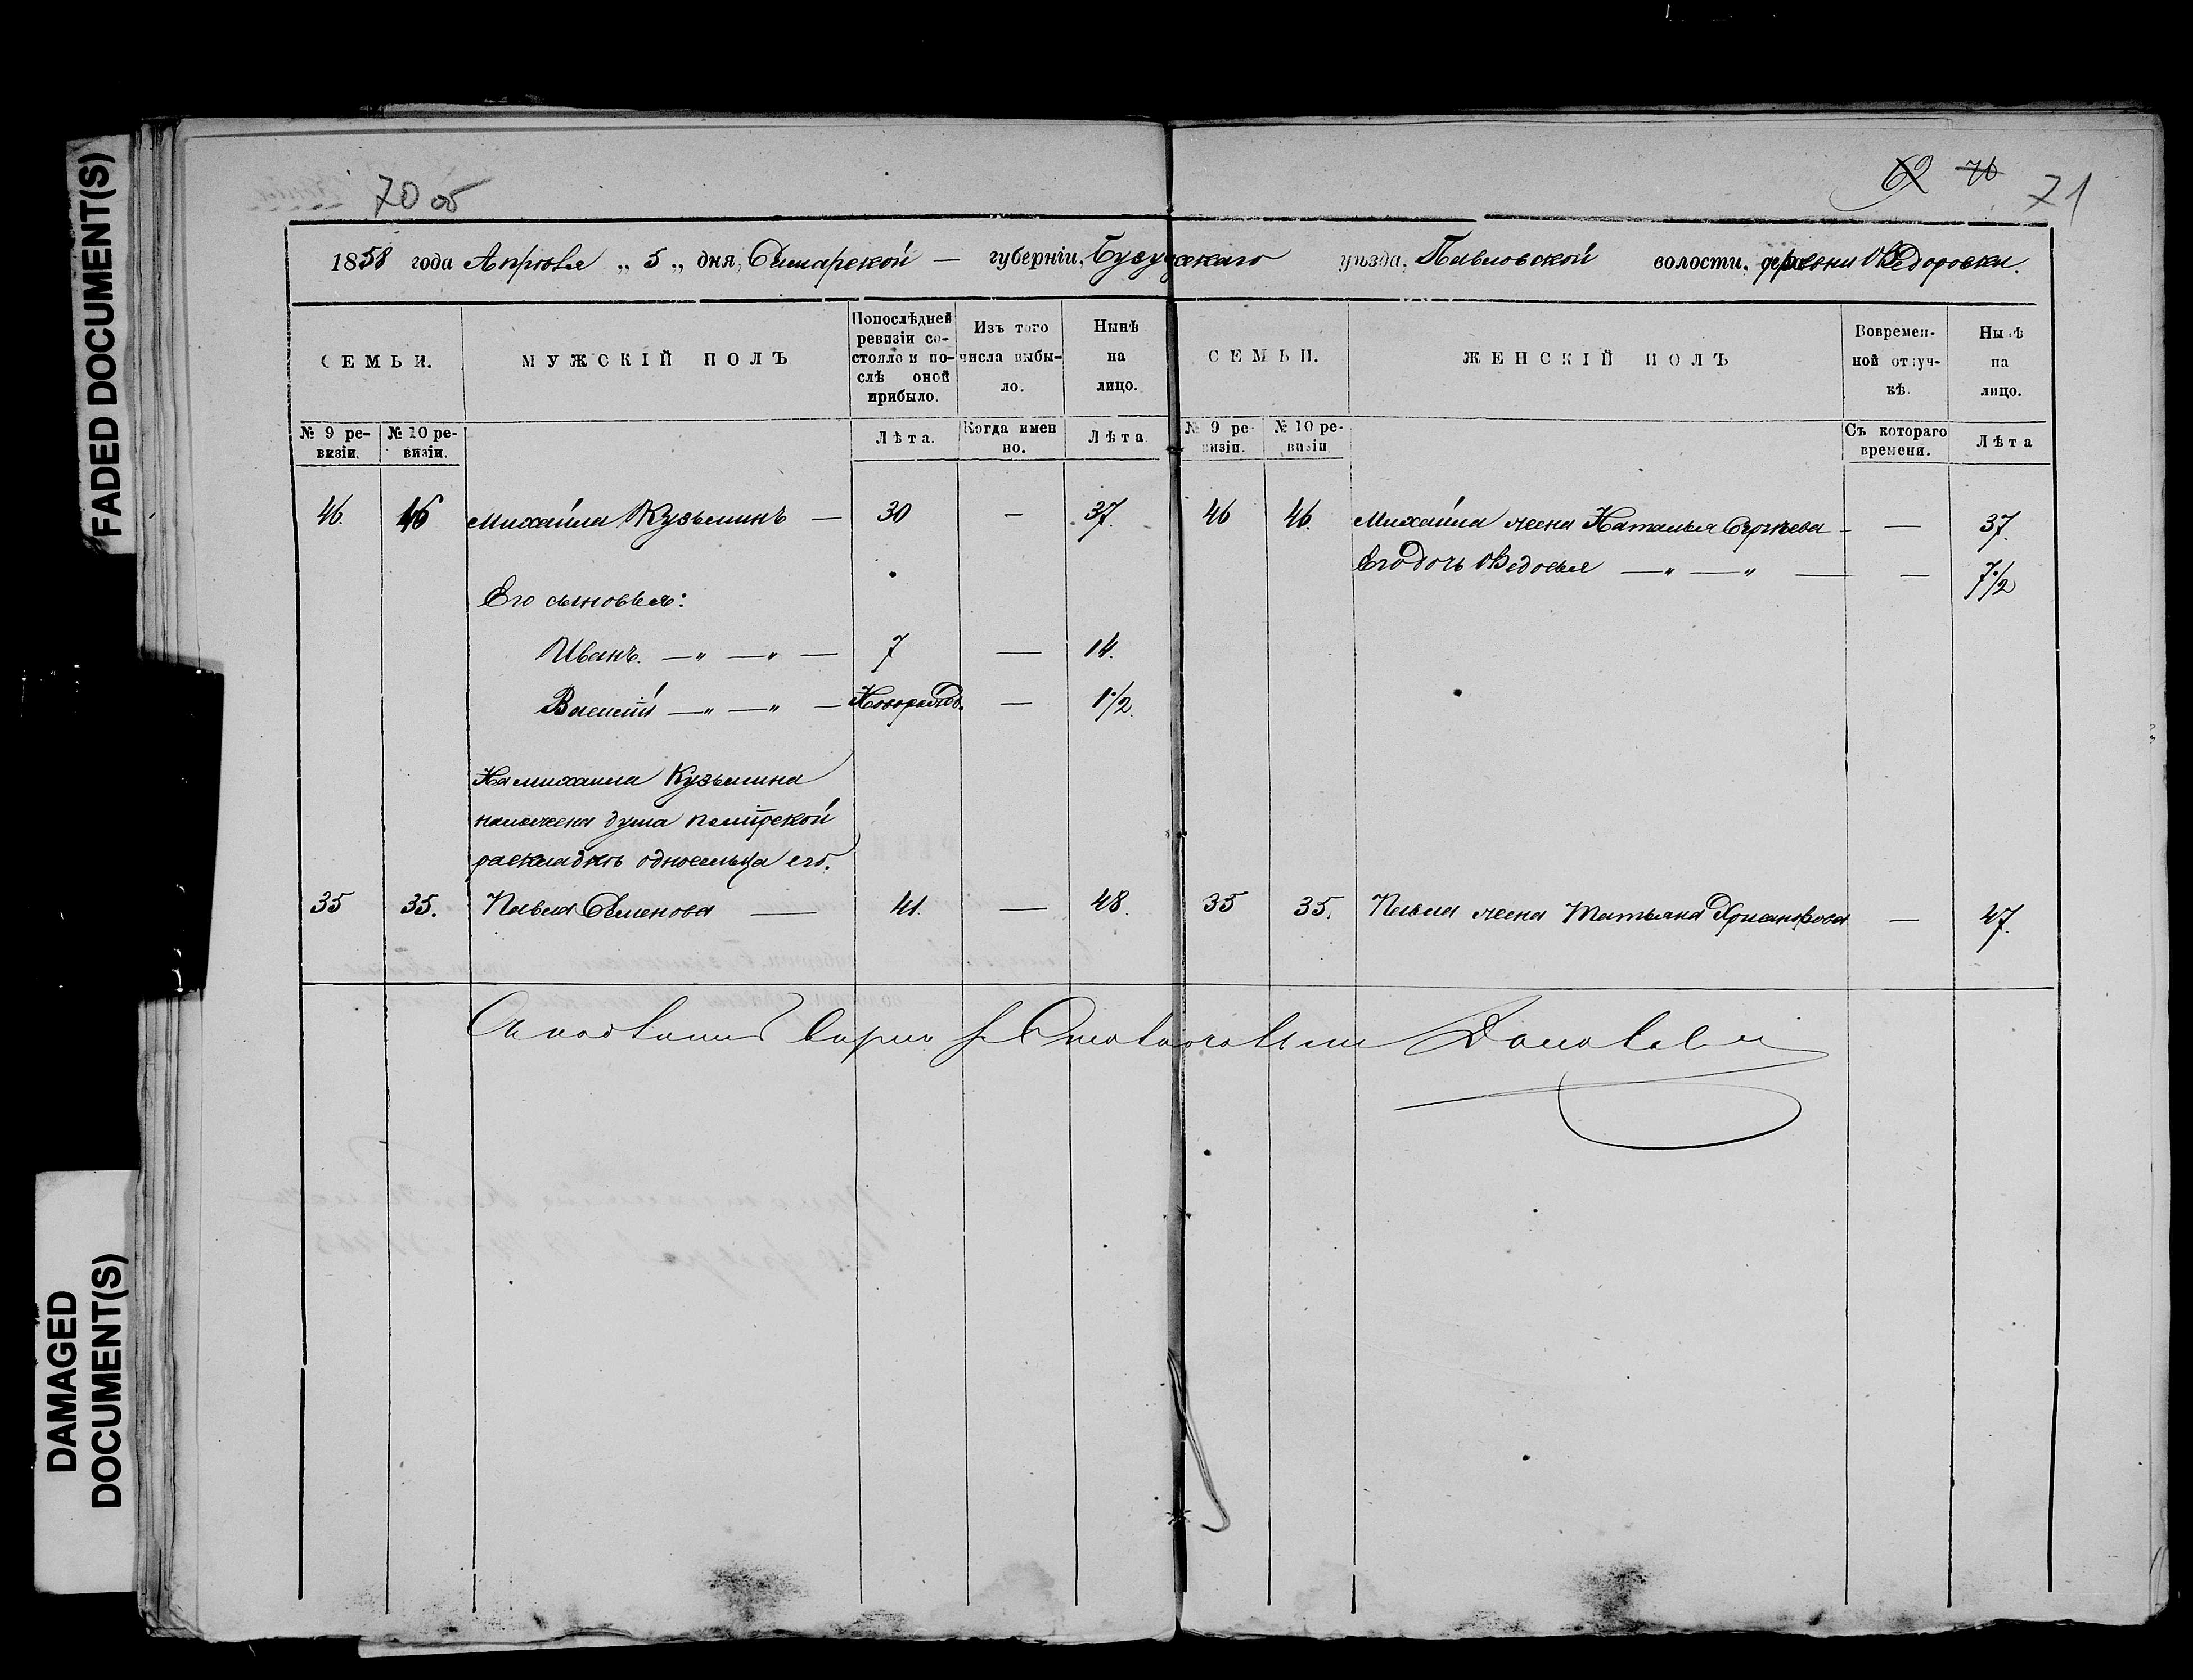 FADED DOCUMENT(S)
DAMAGED
DOCUMENT(S)
70 об
69 70 71
1858 года Апрѣля „ 5 „ дня, Самарской — губерніи, Бузулукскаго уѣзда, Павловской волости, деревни Ѳедоровки.
СЕМЬИ.
МУЖСКІЙ ПОЛЪ
Попослѣдней
ревизіи со-
стояло и по-
слѣ оной
прибыло.
Изъ того
числа выбы-
ло.
Нынѣ
на
лицо.
СЕМЬИ.
ЖЕНСКІЙ ПОЛЪ
Вовремен-
ной отлуч-
кѣ.
Нынѣ
на
лицо.
№ 9 ре-
визіи.
№ 10 ре-
визіи.
Лѣта.
Когда имен
но.
Лѣта
№ 9 ре-
визіи.
№ 10 ре-
визіи
Съ котораго
времени.
Лѣта
46. 46 Михайла Кузьминъ — 30 — 37. 46 46. Михайла жена Наталья Сергѣева — — 37.
Его дочь Ѳедосья — „ — „ — — 7 1/2
Его сыновья:
Иванъ. — „ — „ — 7 — 14.
Василій — „ — „ — Новорожд. — 1 1/2.
На михаила Кузьмина
наложена душа
раскладкѣ односельца его.
35 35. Павла Семенова — 41. — 48. 35 35. Павла жена Татьяна Хрисанфова — 47.